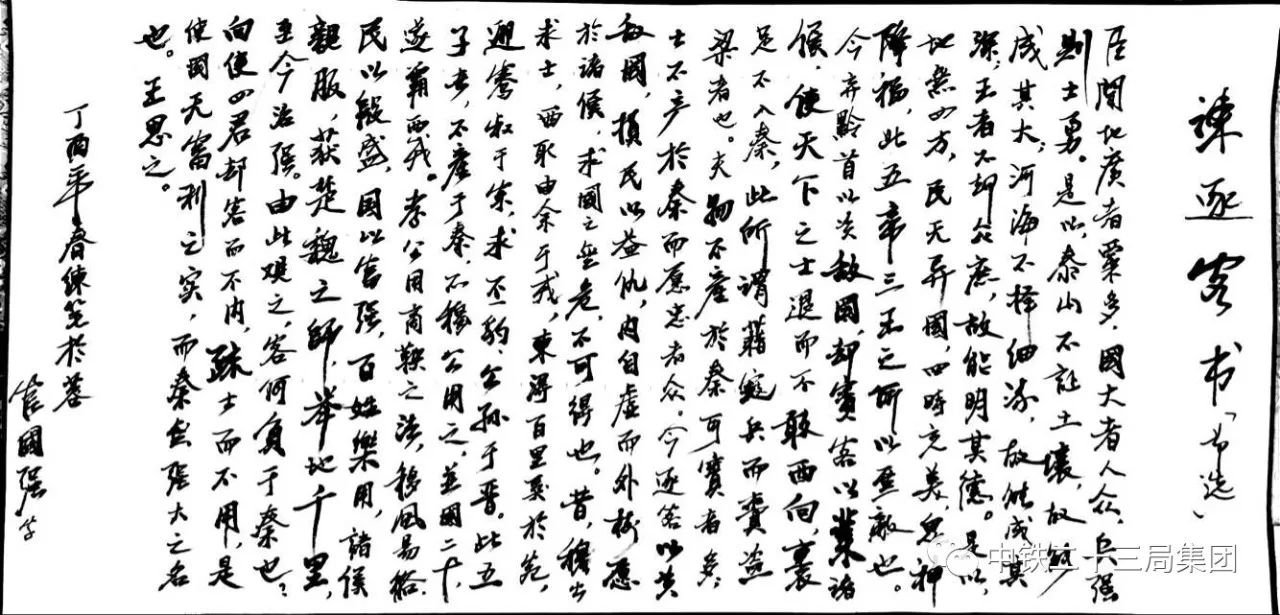 谏逐客书「节选」
臣闻地廣者粟多，國大者人众，兵强
则士勇。是以，泰山不讓土壤，故能
成其大；河海不择细流，故能成其
深；王者不却众庶，故能明其德。是以，
地無四方，民无异國，四時充美，鬼神
降福，此五帝三王之所以無敵也。
今弃黔首以资敌國，却賓客以業诸
侯，使天下之士退而不敢西向，裹
足不入秦，此所謂藉寇兵而賫盗
粱者也。夫物不產於秦可寶者多；
士不产於秦而愿忠者众。今逐客以资
敌國，損民以益仇，内自虚而外樹怨
於诸侯，求國之無危，不可得也。昔，穆公
求士，西取由余于戎，東得百里奚於宛，
迎蹇叔于宋，求丕豹、公孙于晋。此五
子者，不產于秦，而穆公用之，並國二十，
遂霸西戎。孝公用商鞅之法，移風易俗，
民以殷盛，国以富强，百姓樂用，諸侯
親服，获楚魏之師，举地千里，
至今治强。由此观之，客何負于秦也；
向使四君却客而不内，疏士而不用，是
使國无富利之实，而秦無强大之名
也。王思之。
丁酉年春練笔於蓉
國强
中铁二十三局集团